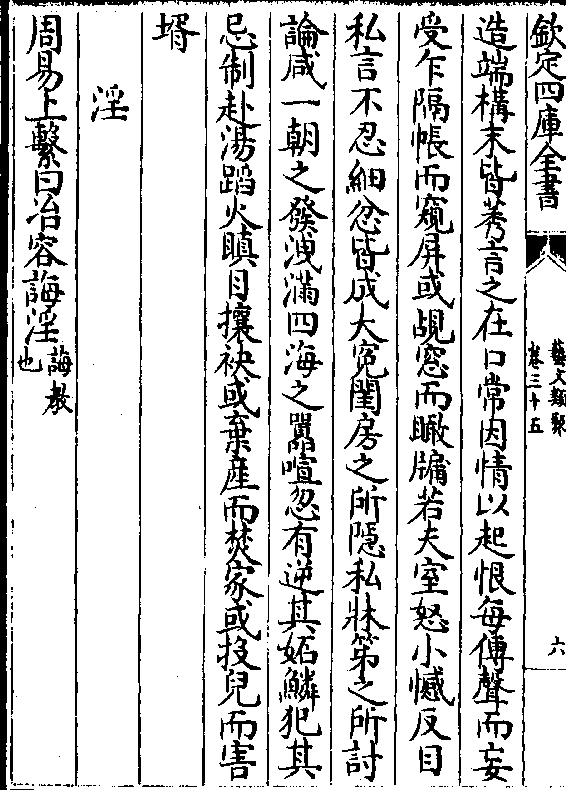 欽定四庫全書
藝文類聚
卷三十五
六
造端構末皆莠言之在口常因情以起恨每傳聲而妄
受乍隔帳而窺屏或覘窓而瞰牖若夫室怒小憾反目
私言不忍細忿皆成大寃閨房之所隱私牀笫之所討
論咸一朝之發洩滿四海之嚚喧忽有逆其妬鱗犯其
忌制赴湯蹈火瞋目攘袂或棄產而焚家或投兒而害
壻
淫
周易上繫曰冶容誨淫誨教也